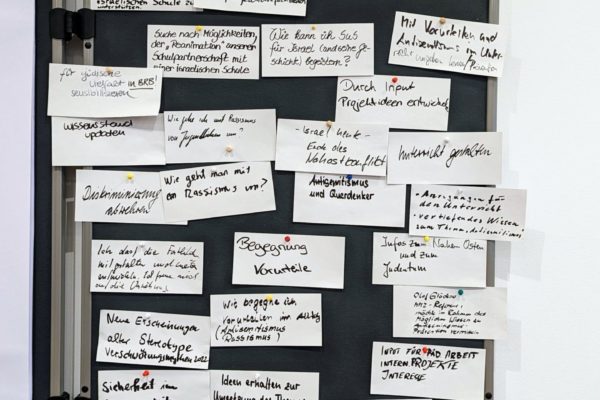 israelischen Schule zu
unterstützen.
Suche nach Möglichkeiten,
der „Reanimation" unserer
Schulpartnerschaft mit
einer israelischen Schule
Wie kann ich SuS
für Israel
begeistern?
Mit Vorurteilen und
Antisemitismus im
für jüdische
Vielfalt in BRB
sensibilisieren
Durch Input
Projektideen entwickeln
Wissensstand
updaten
Wie gehe ich mit Rassismus
von Jugendlichen um?
- Israel heute -
Ende des
Nahostkonflikts
Unterricht gestalten
Diskriminierung
Wie geht man mit
Rassismus um?
Antisemitismus
und Querdenker
- Anregungen für
den Unterricht
- vertiefendes Wissen
zum Thema Antisemitismus
Ich darf die
mitgestalten und
Ich freue mich
auf die
Begegnung
Vorurteile
Infos zum Nahen Osten
und zum
Judentum
Neue Erscheinungen
alter Stereotype
Verschwörungsmythen
Wie begegne ich
Vorurteilen im Alltag
(Antisemitismus
Rassismus)
möchte im Rahmen des
Möglichen Wissen zu
Prävention vermitteln
Input für Päd Arbeit
intern Projekte
Interesse
Sicherheit im
Ideen erhalten zur
Umsetzung des Themas